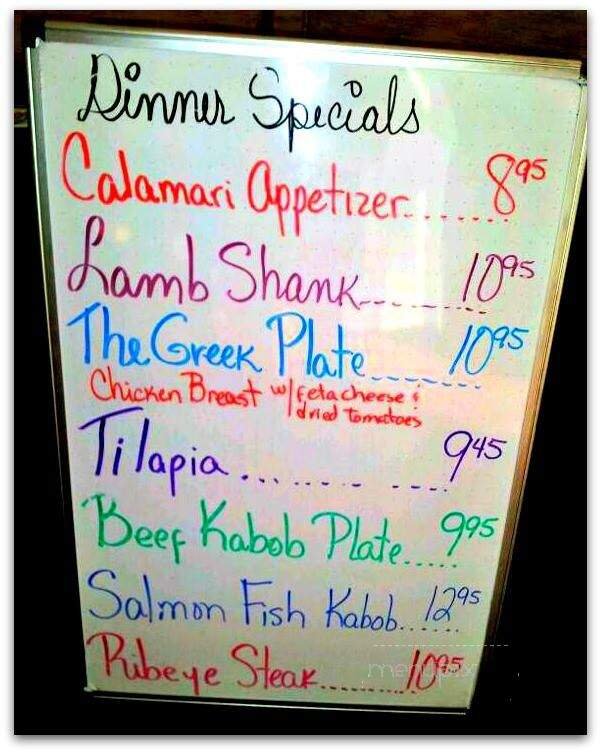 Dinner Specials
Calamari Appetizer....... 8.95
Lamb Shank........ 10.95
The Greek Plate....... 10.95
Chicken Breast w/ feta cheese &
dried tomatoes
Tilapia......... 9.45
Beef Kabob Plate..... 9.95
Salmon Fish Kabob...... 12.95
Ribeye Steak......... 10.95